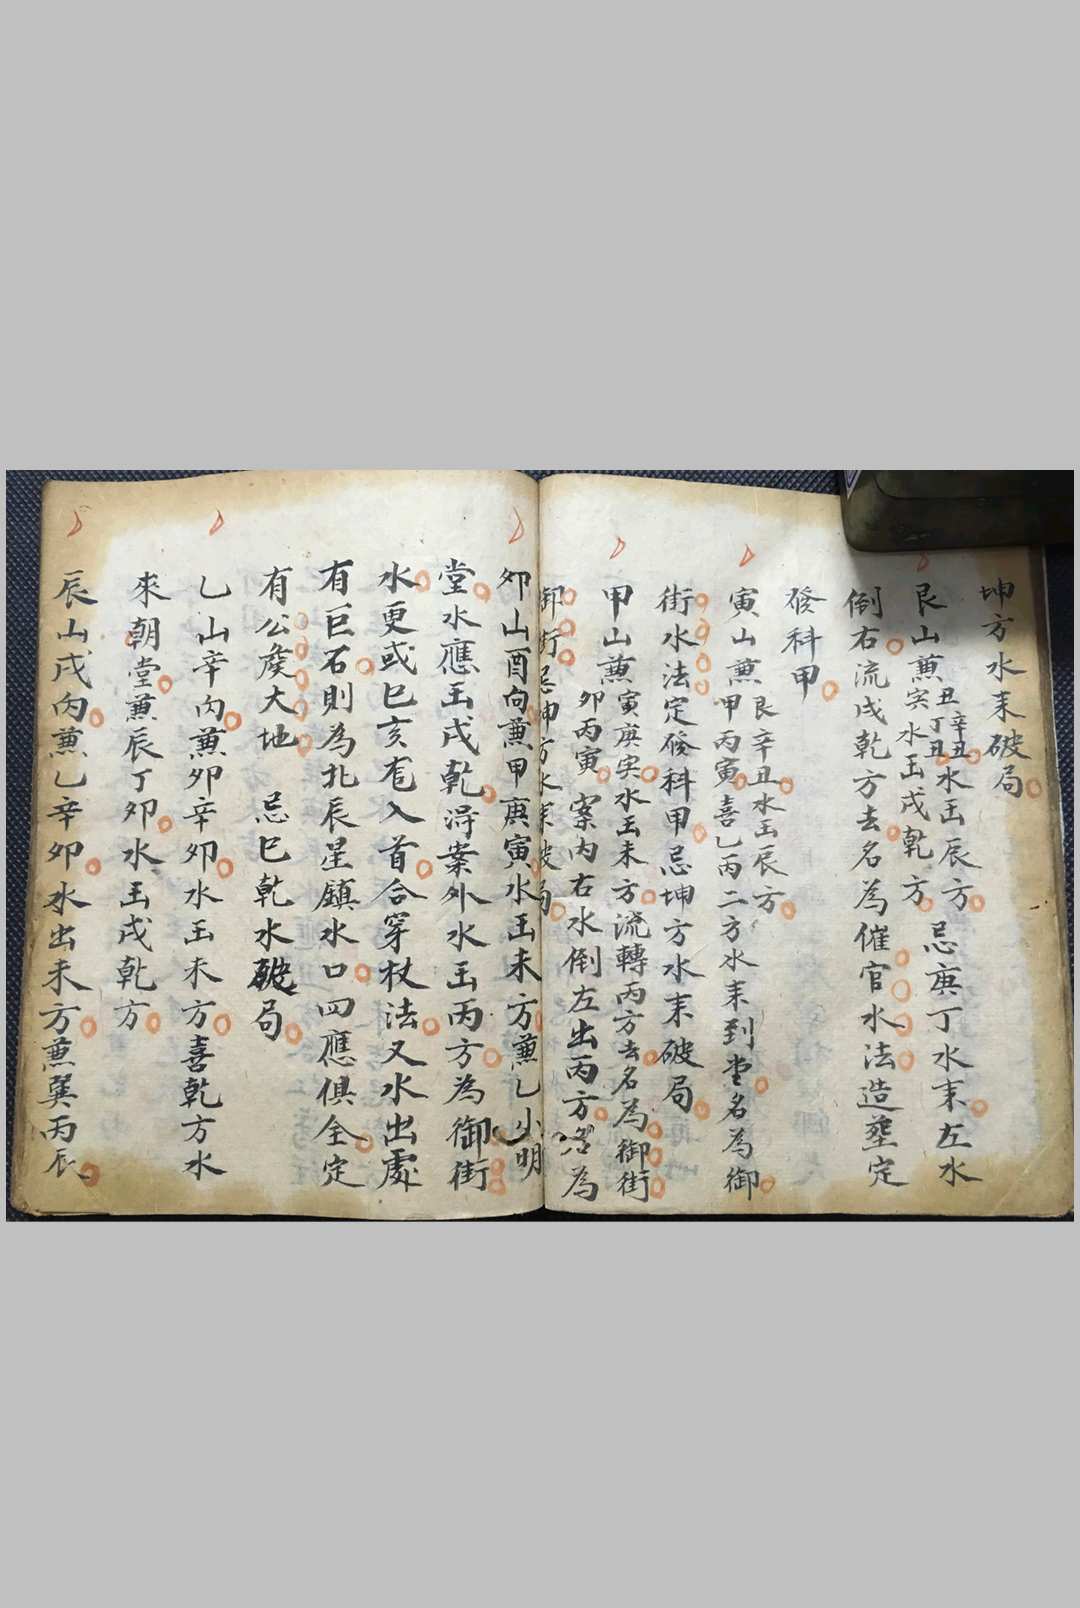 坤方水来破局
艮山兼丑辛丑水玉辰方忌庚丁水来左水
寅丁丑水玉戌乾方
倒右流戌乾方去名為催官水法造塟定
發科甲
寅山兼艮辛丑水玉辰方
甲丙寅喜乙丙二方水来到堂名為御
街水法定發科甲忌坤方水来破局
甲山兼寅庚寅水玉未方流轉丙方去名為御街
卯丙寅案内右水倒左出丙方名為
御街忌坤方水来破局
卯山酉向兼甲庚寅水玉未方兼乙小明
堂水應玉戌乾淂案外水玉丙方為御街
水更或巳亥入首合穿杖法又水出處
有巨石則為北辰星鎮水口四應俱全定
有公侯大地 忌巳乾水破局
乙山辛向兼卯辛卯水玉未方喜乾方水
來朝堂兼辰丁卯水玉戌乾方
辰山戌向兼乙辛卯水出未方兼巽丙辰